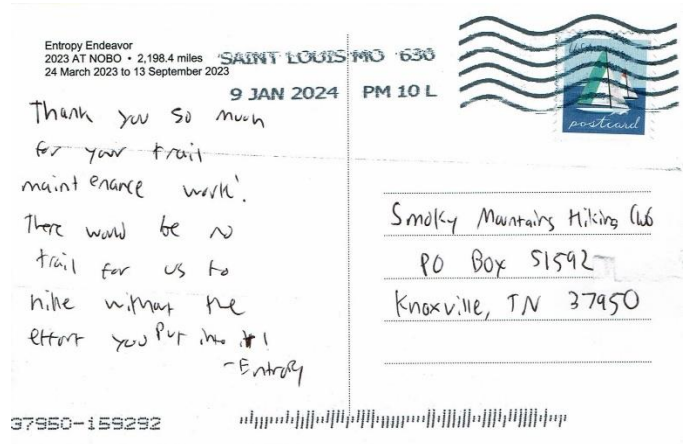 Entropy Endeavor
2023 AT NOBO • 2,198.4 miles
24 March 2023 to 13 September 2023
SAINT LOUIS MO 630
9 JAN 2024 PM 10 L
postcard
Thank you so much
for your trail
maintenance work!
There would be no
trail for us to
hike without the
effort you put into it!
-Entropy
Smoky Mountains Hiking Club
PO Box 51592
Knoxville, TN 37950
37950-159292